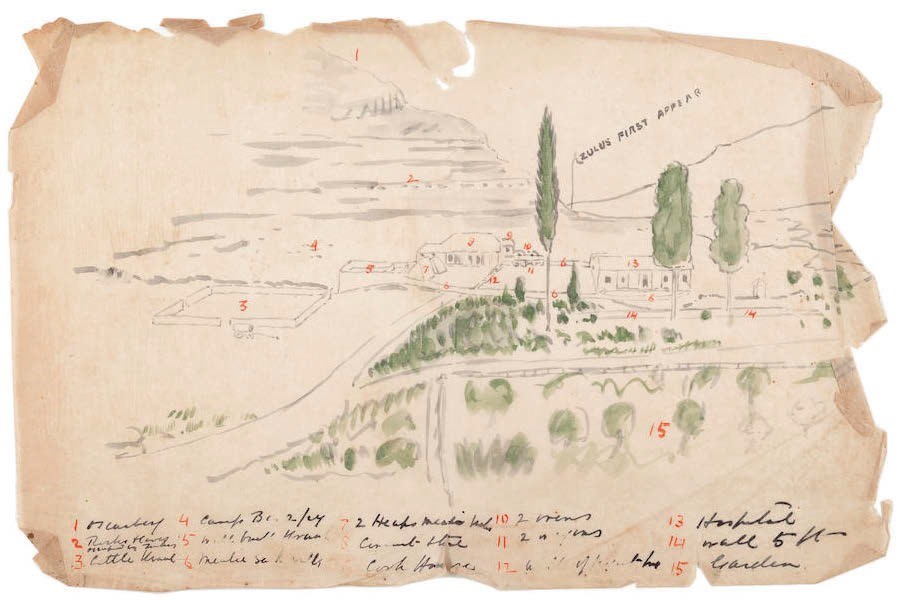 1
ZULUS FIRST APPEAR
2
4
9
10
5
7
11
6
13
12
6
6
6
3
14
14
15
1 Oscarberg
2 occupied by Zulus
3 Cattle Kraal
4 Camp 2/24
5 well built Kraal
6 mealie
7 2 Heaps mealie
Store
Cook House
10 2 ovens
11 2 wagons
12 wall of
13 Hospital
14 wall 5 ft
15 Garden